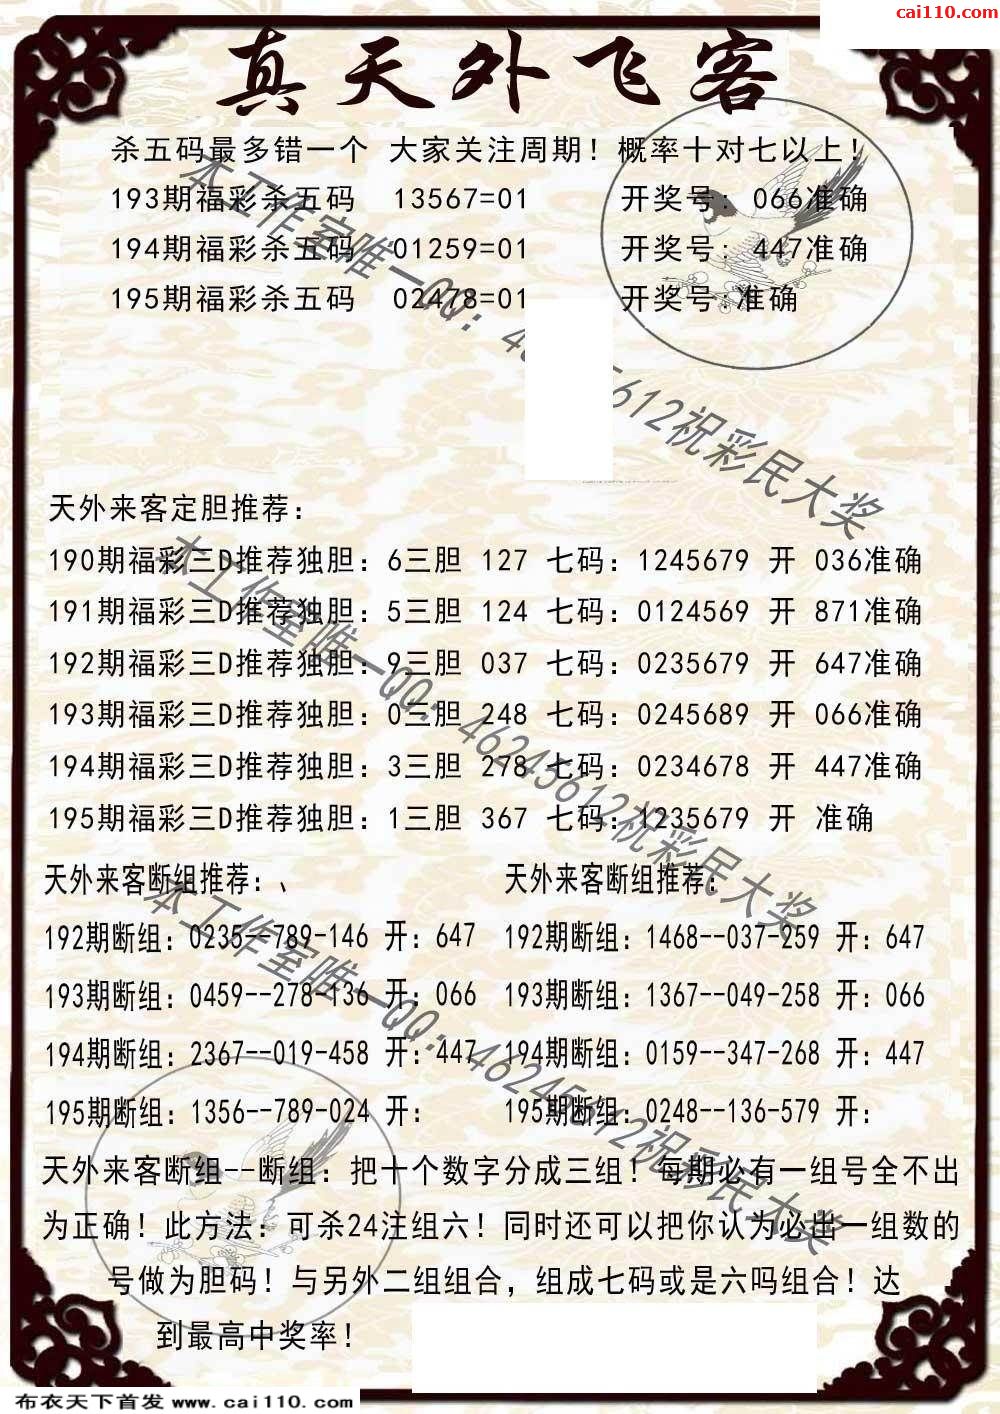 cai110.com
真天外飞客
杀五码最多错一个 大家关注周期！概率十对七以上！
193期福彩杀五码 13567=01 开奖号: 066准确
194期福彩杀五码 01259=01 开奖号: 447准确
195期福彩杀五码 02478=01 开奖号:准确
本工作室唯一QQ：46245612祝彩民大奖
天外来客定胆推荐：
190期福彩三D推荐独胆：6三胆 127 七码：1245679 开 036准确
191期福彩三D推荐独胆：5三胆 124 七码：0124569 开 871准确
192期福彩三D推荐独胆：9三胆 037 七码：0235679 开 647准确
193期福彩三D推荐独胆：0三胆 248 七码：0245689 开 066准确
194期福彩三D推荐独胆：3三胆 278 七码：0234678 开 447准确
195期福彩三D推荐独胆：1三胆 367 七码：1235679 开 准确
本工作室唯一QQ：46245612祝彩民大奖
天外来客断组推荐：、 天外来客断组推荐：
192期断组：0235--789-146 开：647 192期断组：1468--037-259 开：647
193期断组：0459--278-136 开：066 193期断组：1367--049-258 开：066
194期断组：2367--019-458 开：447 194期断组：0159--347-268 开：447
195期断组：1356--789-024 开： 195期断组：0248--136-579 开：
本工作室唯一QQ：46245612祝彩民大奖
天外来客断组--断组：把十个数字分成三组！每期必有一组号全不出
为正确！此方法：可杀24注组六！同时还可以把你认为必出一组数的
号做为胆码！与另外二组组合，组成七码或是六吗组合！达
到最高中奖率！
布衣天下首发 www.cai110.com